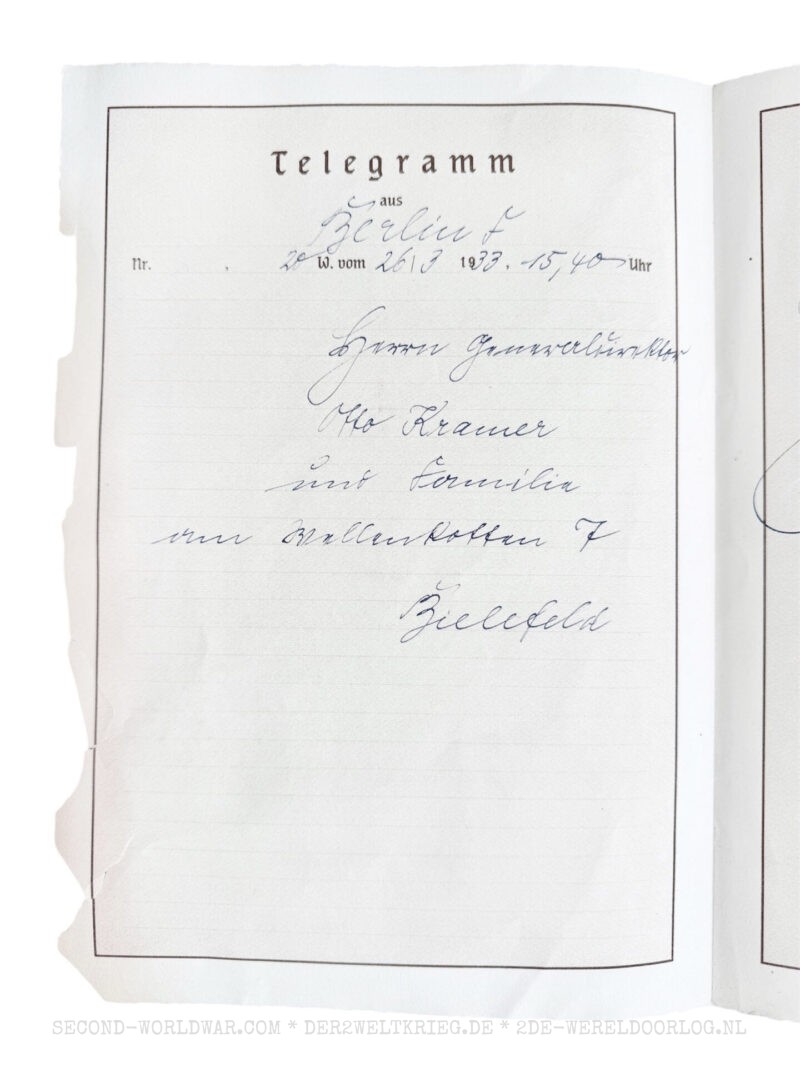 Telegramm
aus
Berlin F
Nr. 20 W. vom 26/3 1933. 15,40 Uhr
Herrn Generaldirektor
Otto Kramer
und Familie
am Wellenkotten 7
Bielefeld
SECOND-WORLDWAR.COM * DER2WELTKRIEG.DE * 2DE-WERELDOORLOG.NL